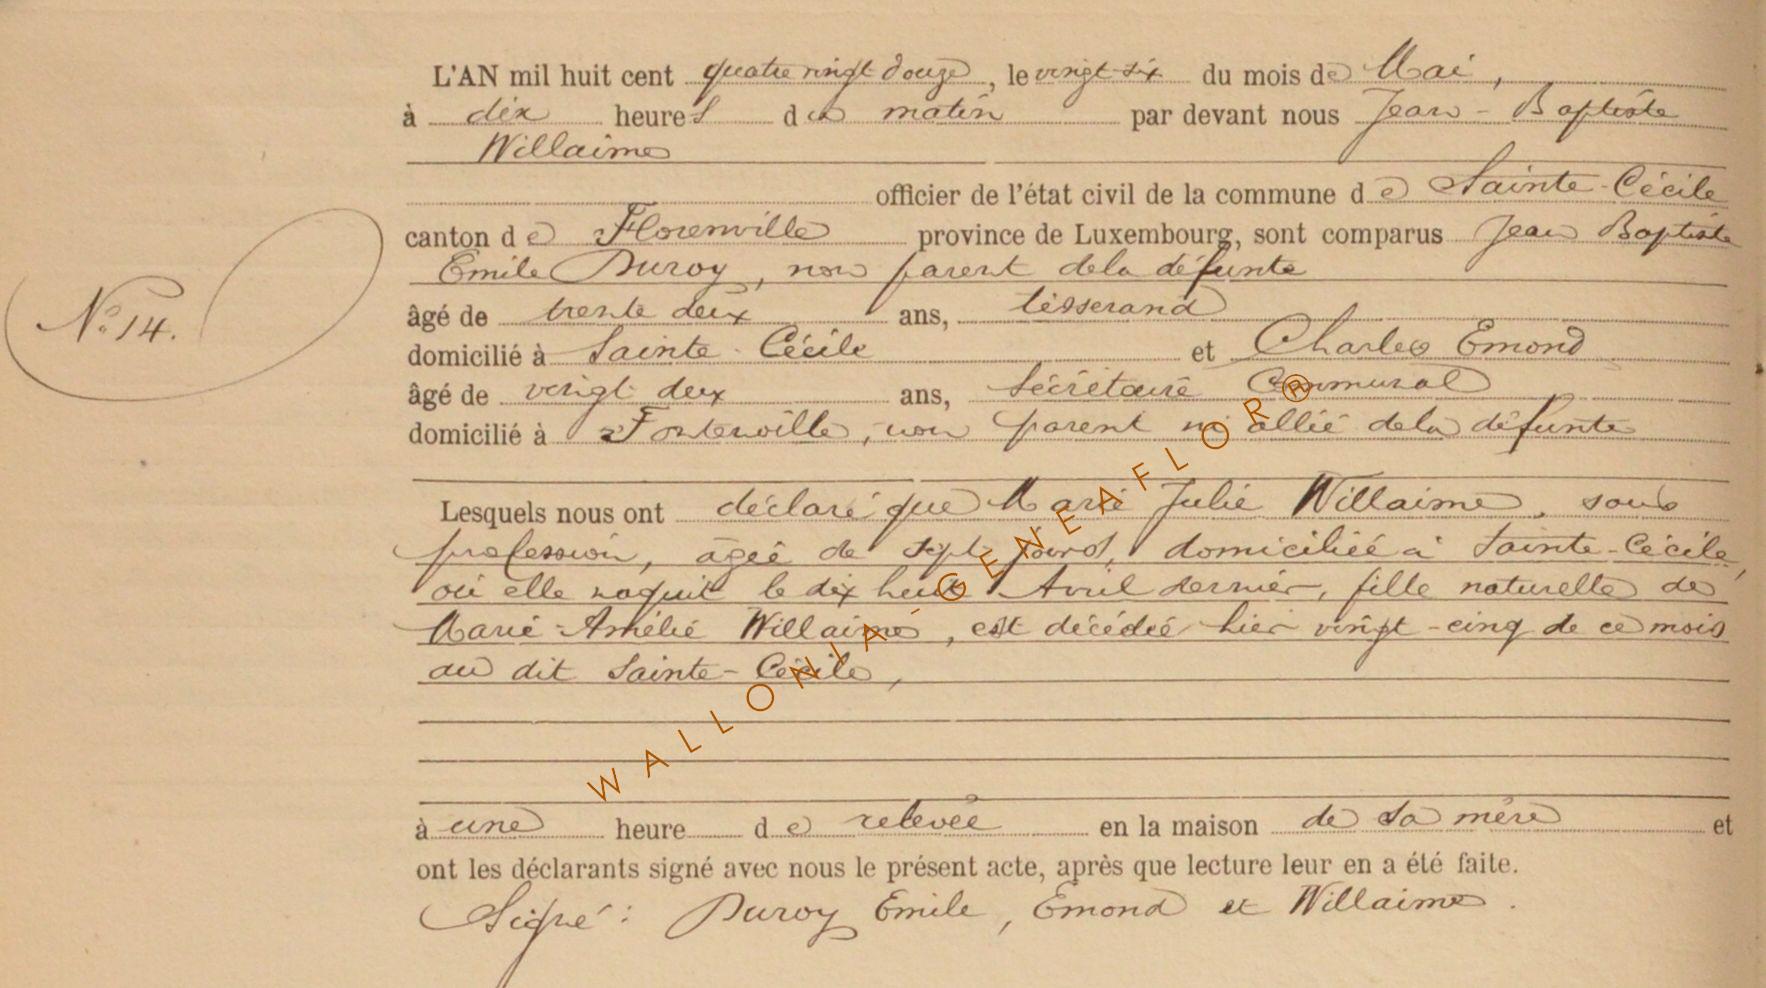 L'AN mil huit cent quatre vingt douze, le vingt-six du mois de Mai,
à dix heures du matin par devant nous Jean-Baptiste
Willaime
officier de l'état civil de la commune de Sainte-Cécile
canton de Florenville province de Luxembourg, sont comparus Jean Baptiste
Emile Duroy, non parent de la défunte
âgé de trente deux ans, tisserand
domicilié à Sainte-Cécile et Charles Emond
N° 14.
âgé de vingt deux ans, Sécrétaire Communal
domicilié à Fontenoille, non parent ni allié de la défunte
Lesquels nous ont déclaré que Marie Julie Willaime, sans
profession, âgée de sept jours, domiciliée à Sainte-Cécile,
où elle naquit le dix huit Avril dernier, fille naturelle de
Marie-Amélie Willaime, est décédée hier vingt-cinq de ce mois
au dit Sainte-Cécile,
à une heure de relevée en la maison de sa mère et
ont les déclarants signé avec nous le présent acte, après que lecture leur en a été faite.
Signé: Duroy Emile, Emond et Willaime.
WALLONIA-GENEAFLOR®